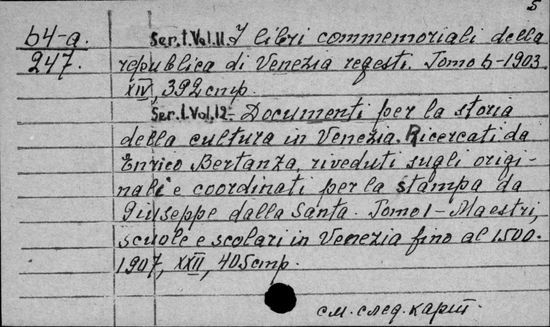 5
b4-a.
247.
Ser.I.Vol.11. I libri commemoriali della
republica di Venezia regesti. Tomo 6-1903.
XIV, 392 стр.
Ser.I.Vol.12- Documenti per la storia
della cultura in Venezia. Ricercati da
Enrico Bertanza, riveduti sugli origi-
nali e coordinati per la stampa da
Giuseppe dalla Santa. Tomo I-Maestri,
scuole e scolari in Venezia fino al 1500.
1907, XXII, 405 стр.
см. след. карт.